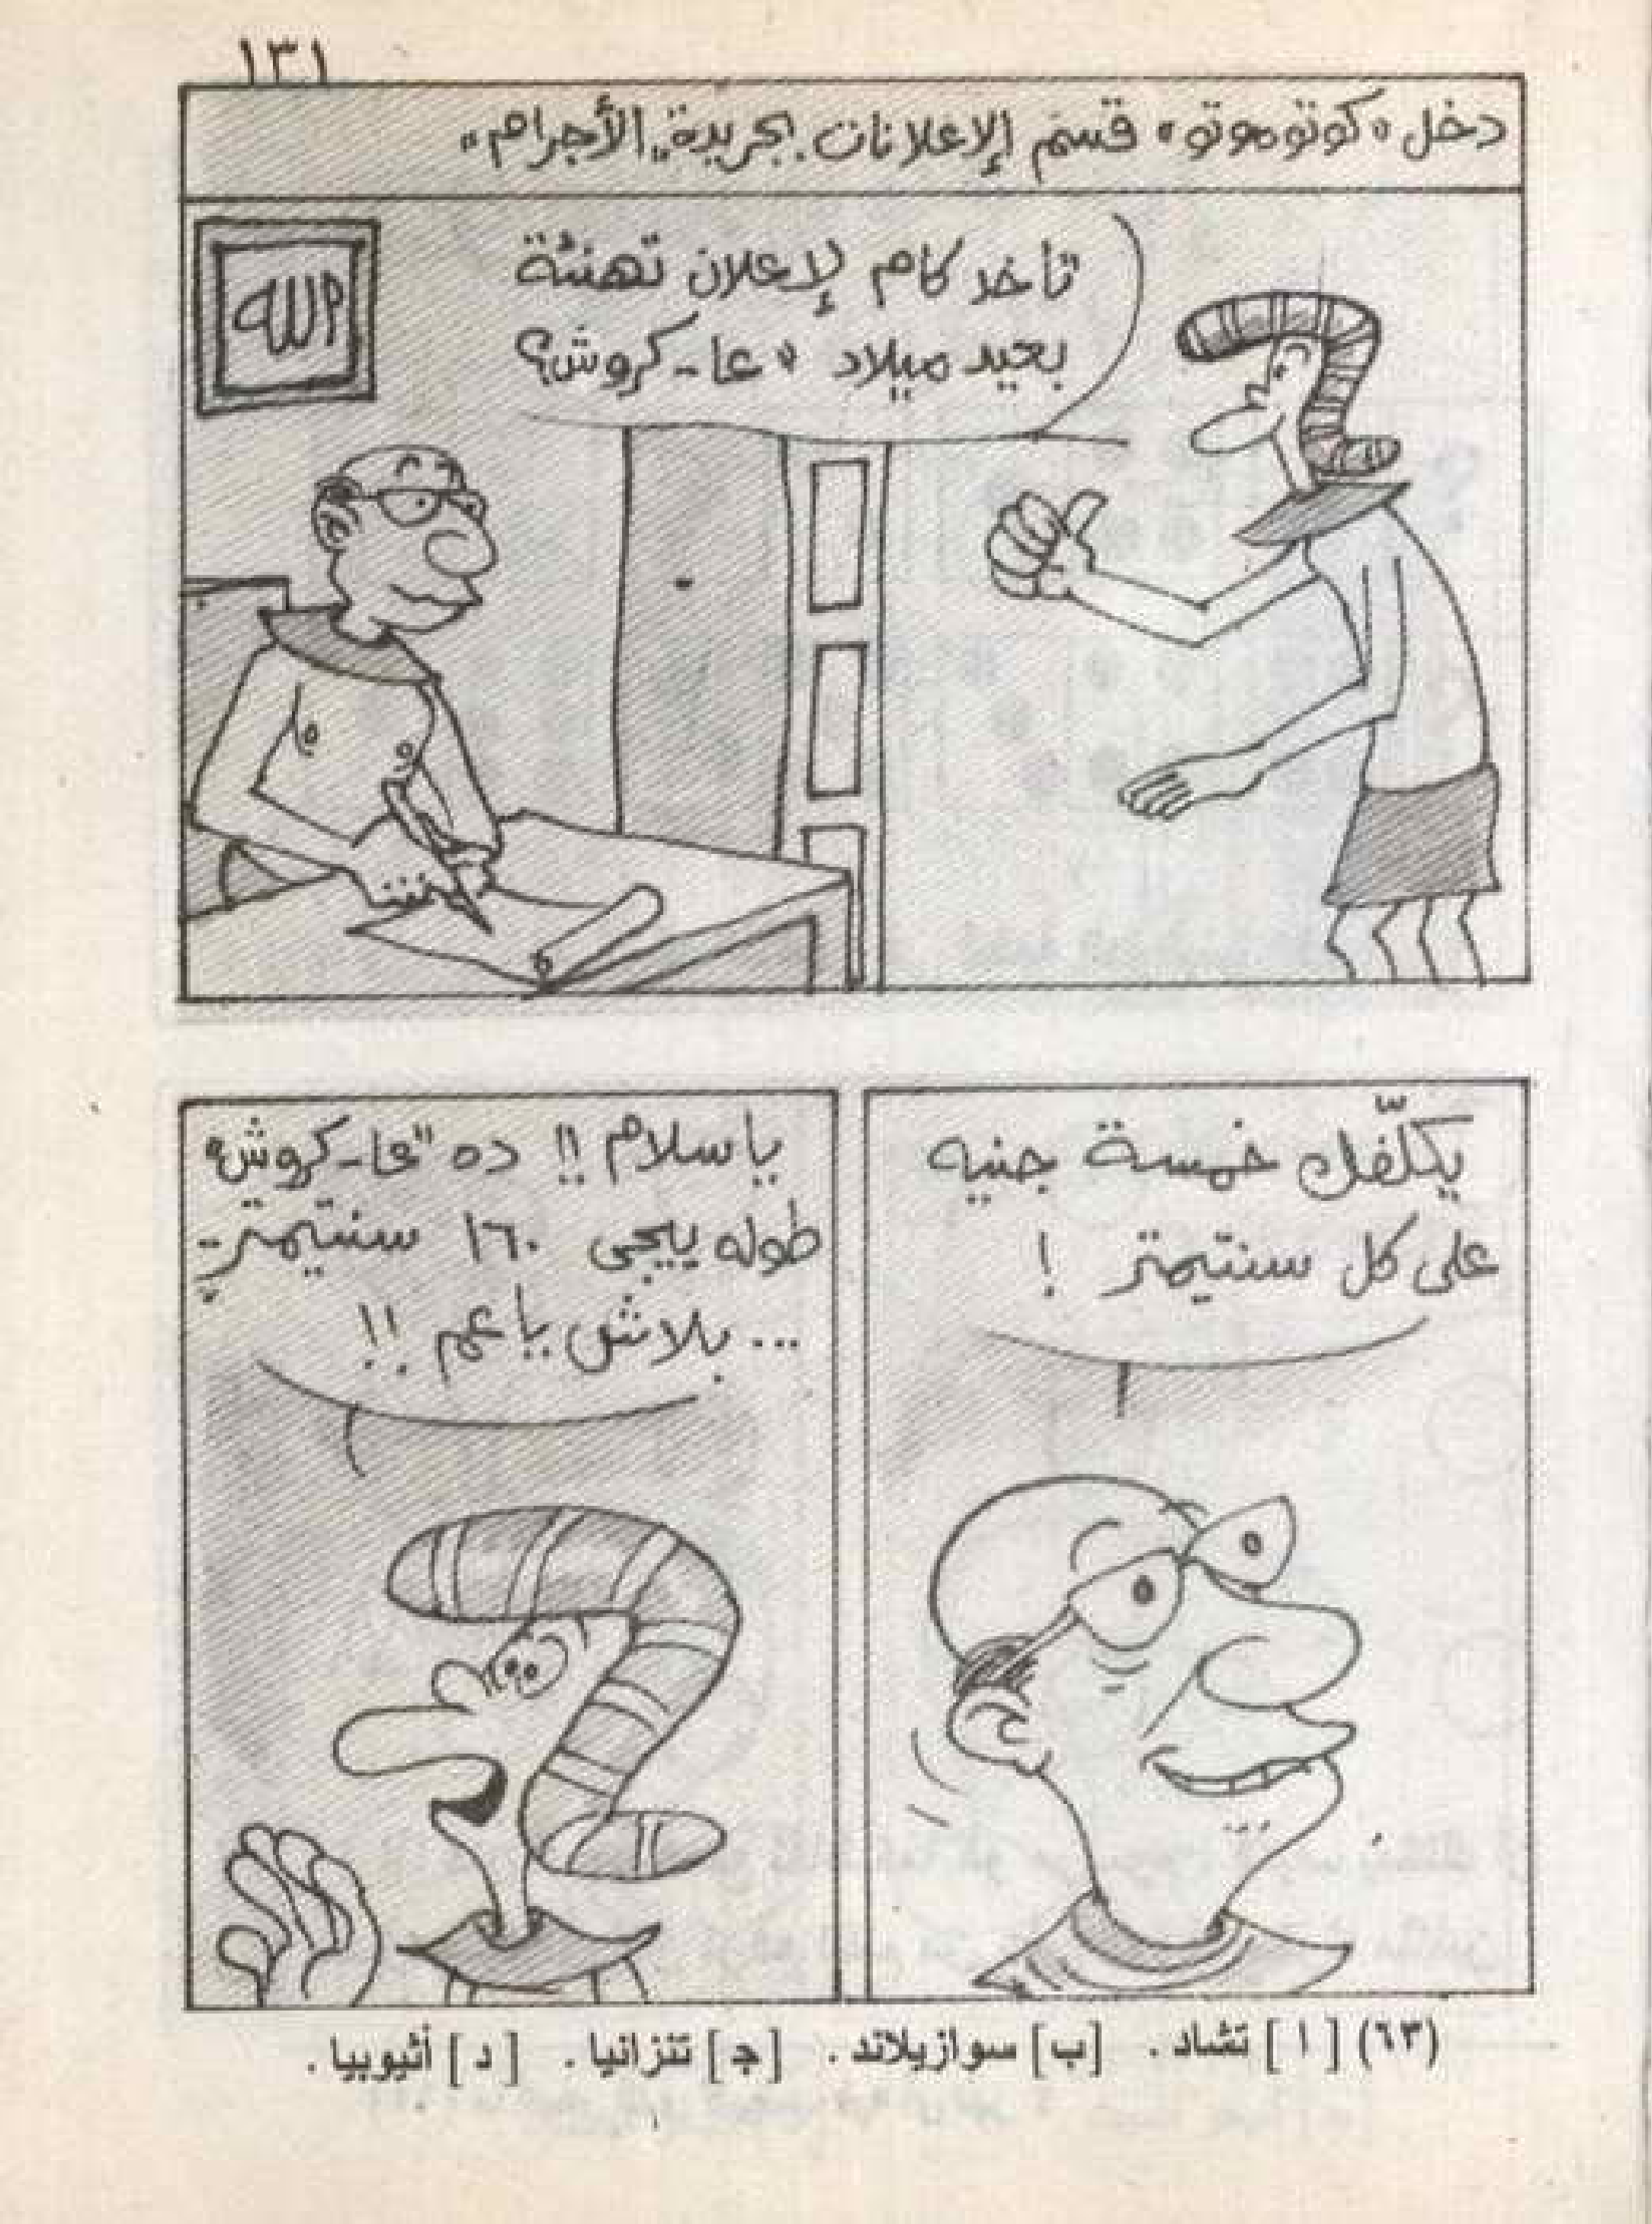 ١٣١
دخل «كوتوموتو» قسم الإعلانات بجريدة "الأجرام"
الله
تاخد كام لإعلان تهنئة
بعيد ميلاد «عا-كروش؟
يكلّفك خمسة جنيه
على كل سنتيمتر !
ياسلام !! ده "عا-كروش"
طوله ييجى ١٦٠ سنتيمتر-
... بلاش ياعم !!
(٦٣) [ ا ] تشاد . [ب] سوازيلاند . [جـ] تنزانيا . [ د ] أثيوبيا .